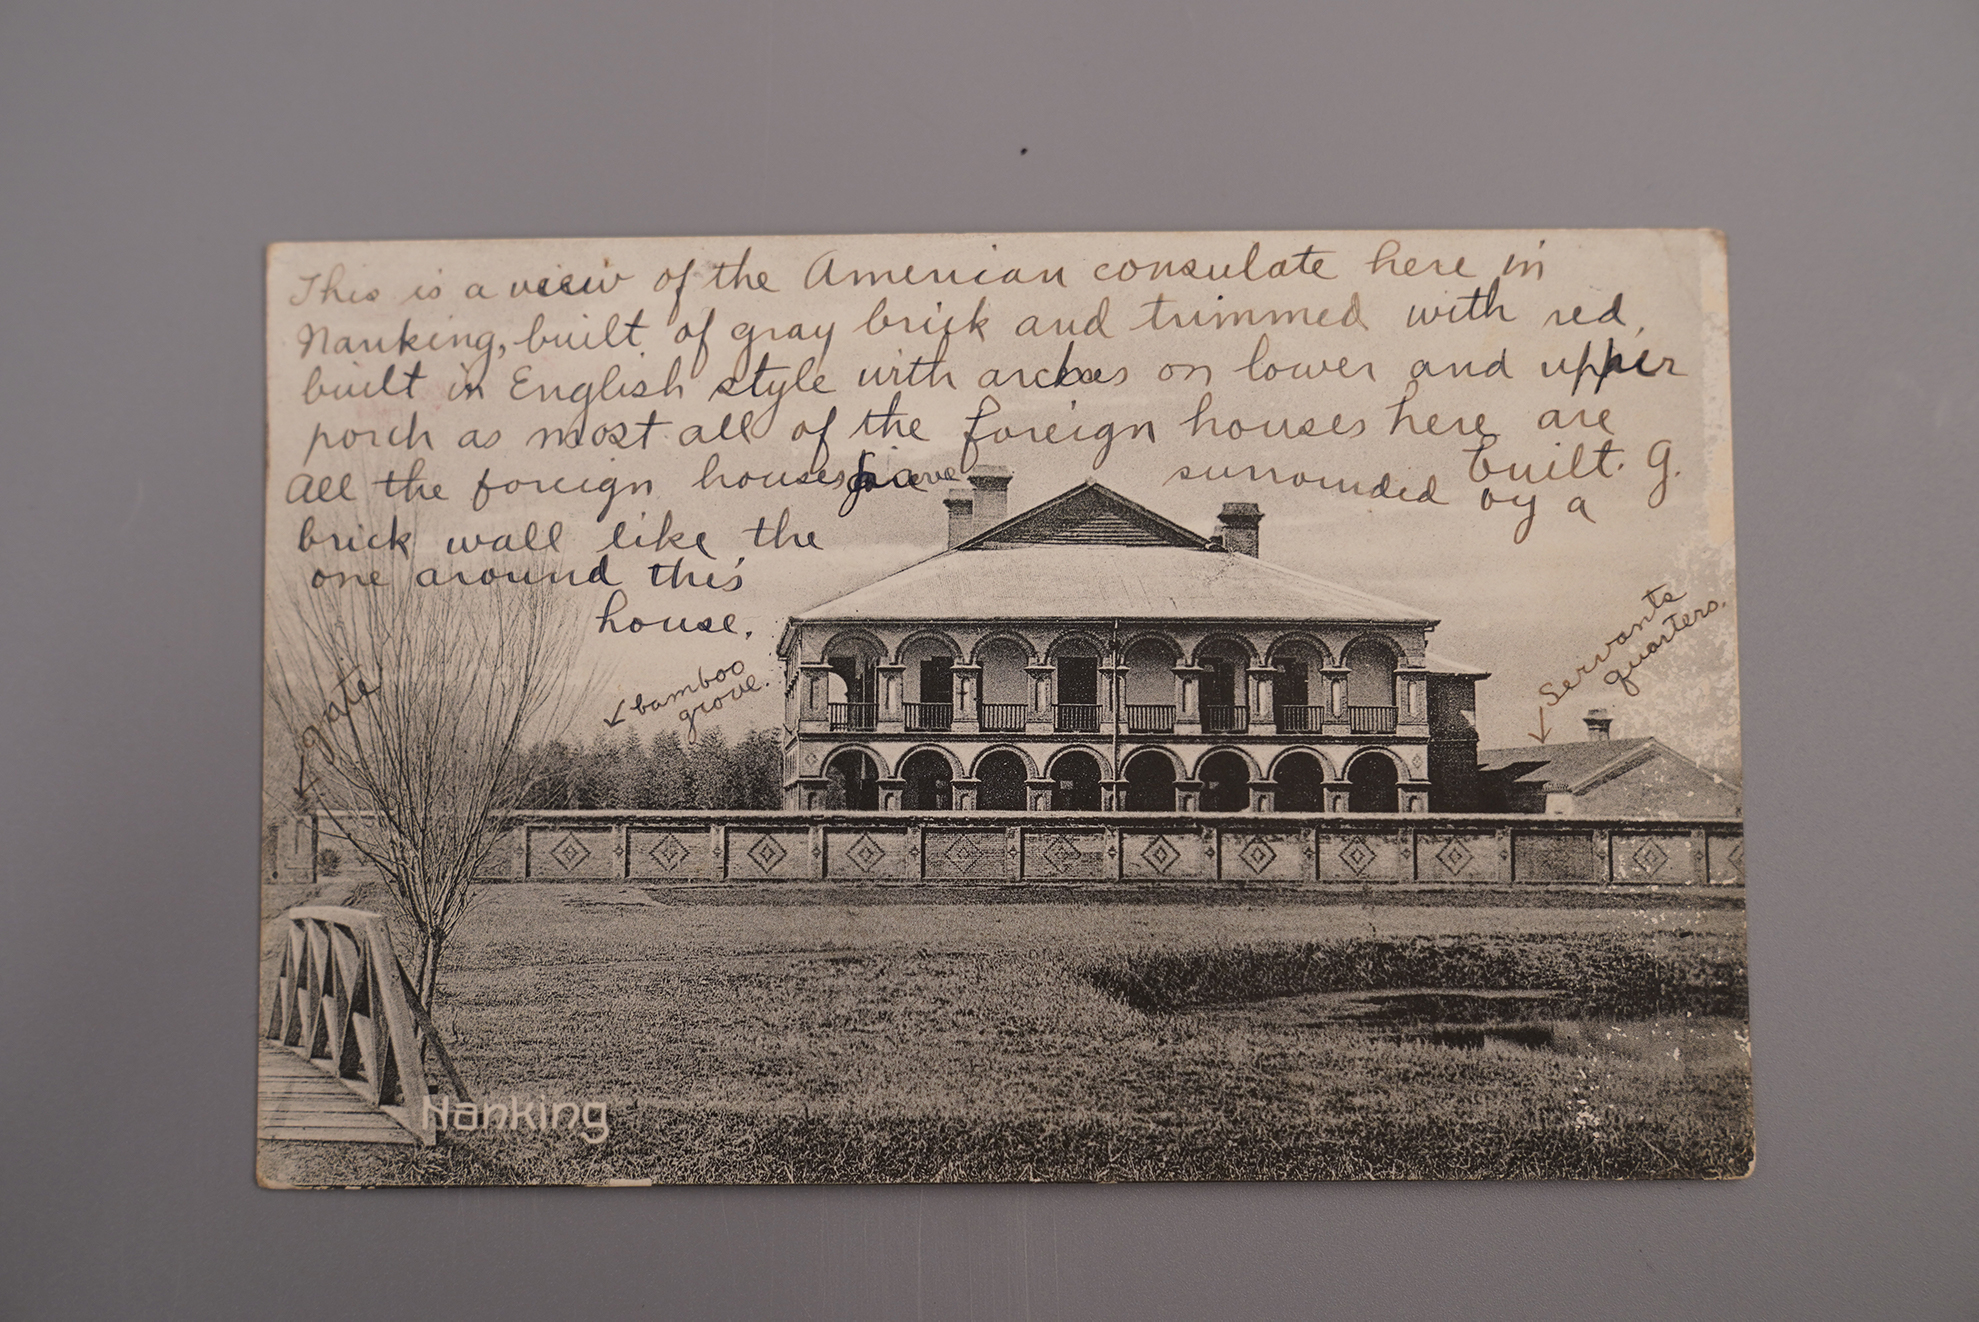 This is a view of the American consulate here in
Nanking, built of gray brick and trimmed with red,
built in English style with arches on lower and upper
porch as most all of the foreign houses here are
built. G.
All the foreign houses are surrounded by a
brick wall like the
one around this
house.
gate
bamboo
grove.
Servants
quarters.
Nanking